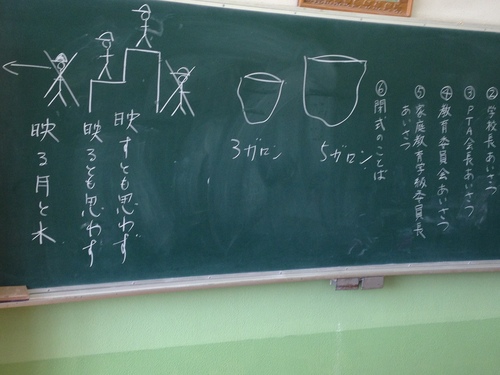 ②学校長あいさつ
③PTA会長あいさつ
④教育委員会あいさつ
⑤家庭教育学級委員長
あいさつ
⑥閉式のことば
5ガロン
3ガロン
映すとも思わず
映るとも思わず
映る月と水